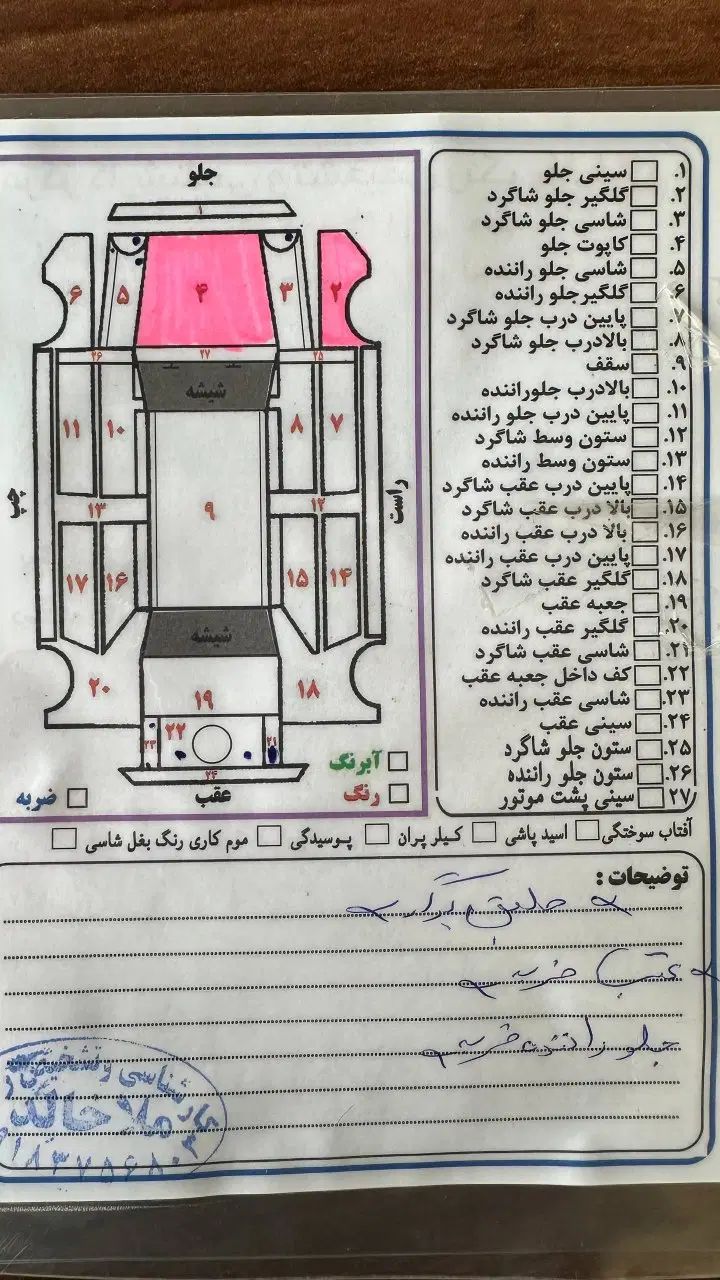 جلو
۱
۶
۵
۴
۳
۲
۲۶
۲۷
۲۵
شیشه
۱۱
۱۰
۸
۷
چپ
راست
۹
۱۳
۱۲
۱۷
۱۶
۱۵
۱۴
شیشه
۲۰
۱۹
۱۸
۲۳
۲۲
۲۱
۲۴
عقب
آبرنگ
رنگ
ضربه
۱. سینی جلو
۲. گلگیر جلو شاگرد
۳. شاسی جلو شاگرد
۴. کاپوت جلو
۵. شاسی جلو راننده
۶. گلگیرجلو راننده
۷. پایین درب جلو شاگرد
۸. بالادرب جلو شاگرد
۹. سقف
۱۰. بالادرب جلوراننده
۱۱. پایین درب جلو راننده
۱۲. ستون وسط شاگرد
۱۳. ستون وسط راننده
۱۴. پایین درب عقب شاگرد
۱۵. بالا درب عقب شاگرد
۱۶. بالا درب عقب راننده
۱۷. پایین درب عقب راننده
۱۸. گلگیر عقب شاگرد
۱۹. جعبه عقب
۲۰. گلگیر عقب راننده
۲۱. شاسی عقب شاگرد
۲۲. کف داخل جعبه عقب
۲۳. شاسی عقب راننده
۲۴. سینی عقب
۲۵. ستون جلو شاگرد
۲۶. ستون جلو راننده
۲۷. سینی پشت موتور
آفتاب سوختگی اسید پاشی کیلر پران پوسیدگی موم کاری رنگ بغل شاسی
توضیحات :
عقب ضربه
جلو راننده ضربه
کارشناسی و تشخیص